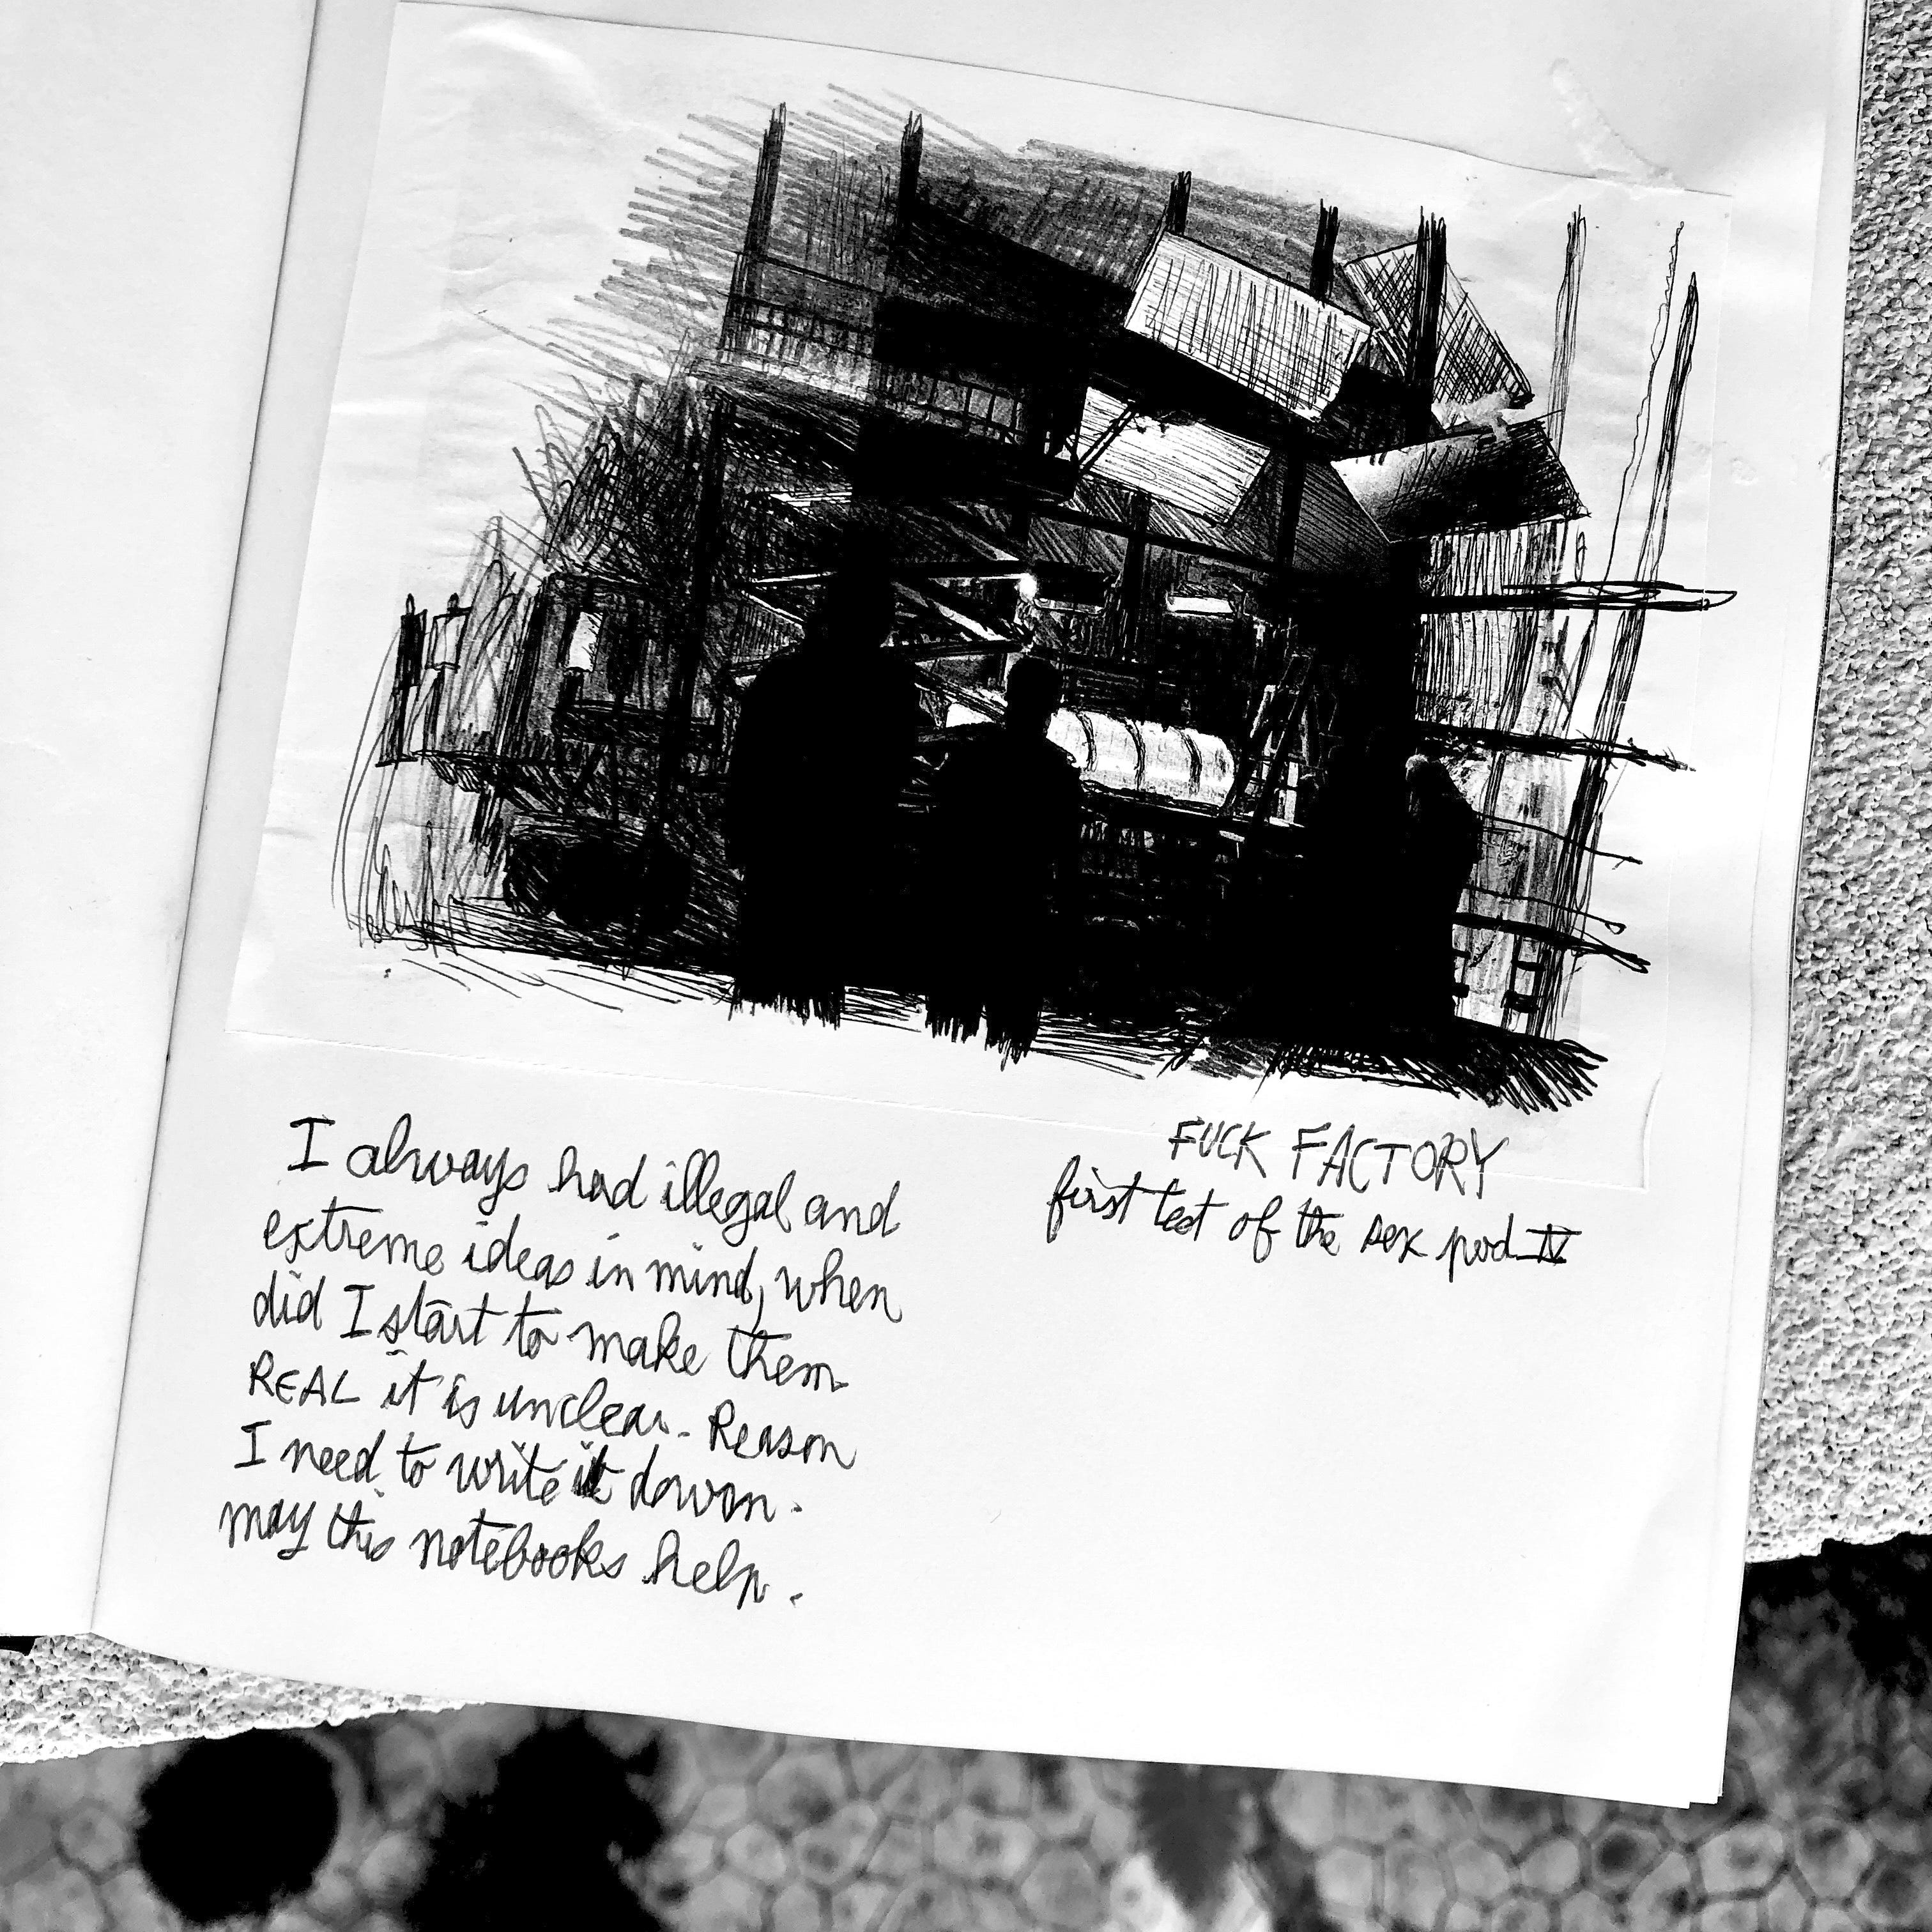 I always had illegal and
extreme ideas in mind, when
did I start to make them
REAL it is unclear. Reason
I need to write it down.
may this notebooks help.
FUCK FACTORY
first test of the sex pod IV